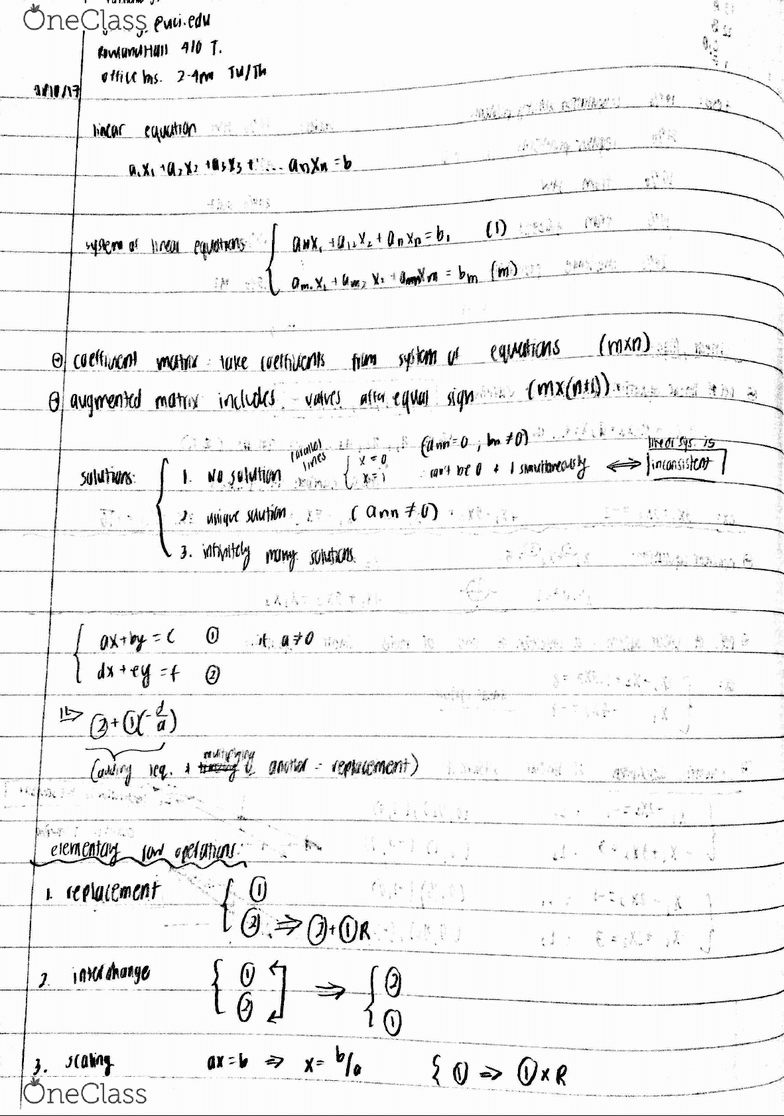 OneClass
@uci.edu
Rowland Hall 410 T.
office hrs. 2-4pm Tu/Th
linear equation
a₁x₁ + a₂x₂ + a₃x₃ + ... anxn = b
system of linear equations { a₁₁x₁ + a₁₂x₂ + anxn = b₁ (1)
am₁x₁ + am₂x₂ + amnxn = bm (m)
coefficient matrix: take coefficients from system of equations (mxn)
augmented matrix includes values after equal sign (mx(n+1))
solutions: { 1. no solution parallel lines { x=0 x=1 (ann=0, bn≠0) can't be 0 + 1 simultaneously ⟺ linear sys. is inconsistent
2. unique solution (ann ≠ 0)
3. infinitely many solutions
{ ax+by=c ① if a≠0
dx+ey=f ②
②+①(-d/a)
(adding 1eq. + multiplying another = replacement)
elementary row operations:
1. replacement { ① ② ⇒ ②+①R
2. interchange { ① ② ⇒ { ② ①
3. scaling ax=b ⇒ x=b/a { ① ⇒ ①xR
OneClass